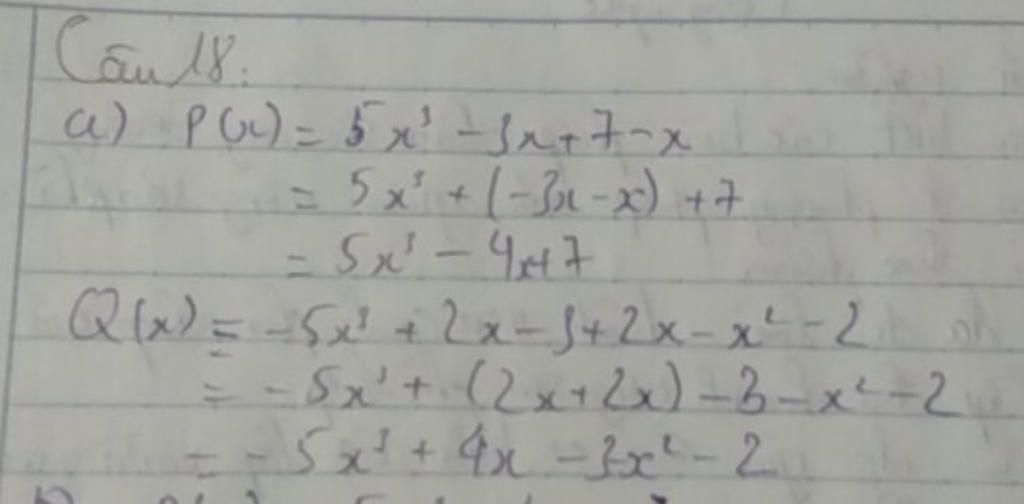 Câu 18:
a) P(x) = 5x³ - 3x + 7 - x
= 5x³ + (-3x - x) + 7
= 5x³ - 4x + 7
Q(x) = -5x³ + 2x - 3 + 2x - x² - 2
= -5x³ + (2x + 2x) - 3 - x² - 2
= -5x³ + 4x - 3x² - 2